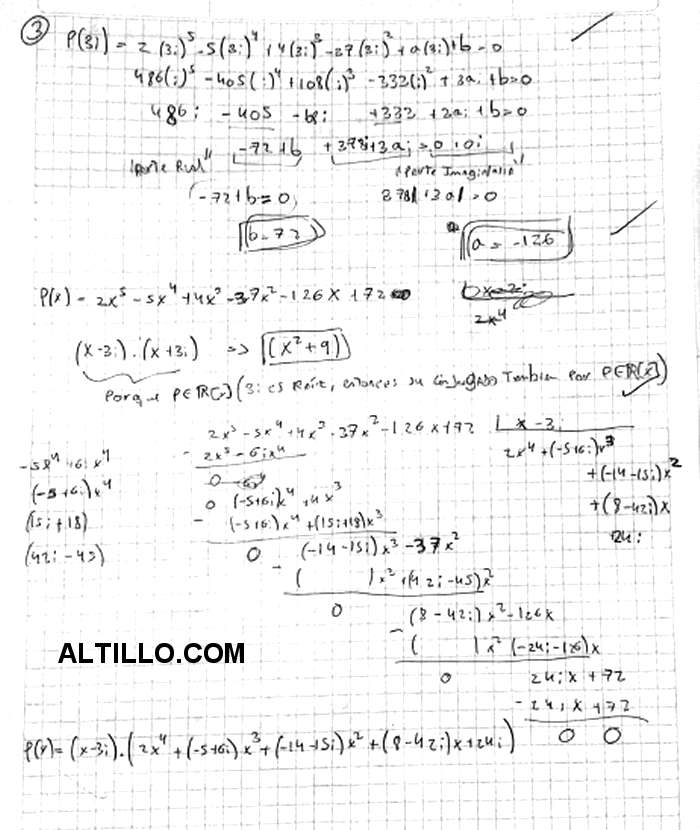 ③ P(3i) = 2(3i)^5 - 5(3i)^4 + 4(3i)^3 - 37(3i)^2 + a(3i) + b = 0
486(i)^5 - 405(i)^4 + 108(i)^3 - 333(i)^2 + 3ai + b = 0
486i - 405 - 108i + 333 + 3ai + b = 0
-72 + b + 378i + 3ai = 0 + 0i
"Parte Real" "Parte Imaginaria"
-72 + b = 0 378 + 3a = 0
b = 72 a = -126
P(x) = 2x^5 - 5x^4 + 4x^3 - 37x^2 - 126x + 72
2x^4
(x-3i).(x+3i) => (x^2+9)
Porque P∈R[x] (3i es Raíz, entonces su conjugado Tambien Por P∈R[x])
2x^5 - 5x^4 + 4x^3 - 37x^2 - 126x + 72 | x - 3i
-5x^4 + 6i x^4 - 2x^5 - 6i x^4 2x^4 + (-5+6i)x^3
(-5+6i)x^4 0 + (-14-15i)x^2
0 (-5+6i)x^4 + 4x^3 + (8-42i)x
(15i+18) - (-5+6i)x^4 + (15i+18)x^3 24i
(42i-45) 0 (-14-15i)x^3 - 37x^2
- ( )x^2 + (42i-45)x^2
0 (8-42i)x^2 - 126x
- ( )x^2 (-24i-126)x
ALTILLO.COM
0 24ix + 72
- 24ix + 72
0 0
P(x) = (x-3i).(2x^4 + (-5+6i)x^3 + (-14-15i)x^2 + (8-42i)x + 24i)